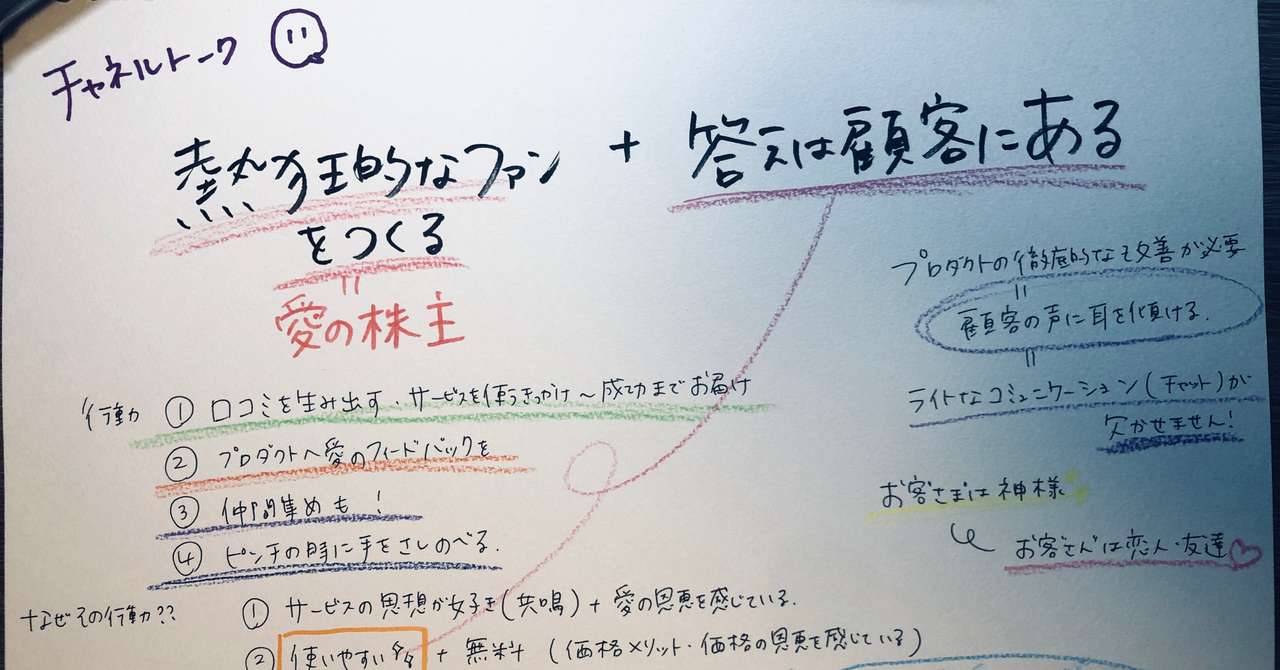 チャネルトーク
熱狂的なファン + 答えは顧客にある
をつくる
=
愛の株主
プロダクトの徹底的な改善が必要
=
顧客の声に耳を傾ける.
=
ライトなコミュニケーション(チャット)が
欠かせません!
お客さまは神様
お客さんは恋人・友達
行動 ① 口コミを生み出す・サービスを使うきっかけ〜成功までお届け
② プロダクトへ愛のフィードバックを
③ 仲間集めも!
④ ピンチの時に手をさしのべる.
なぜその行動??
① サービスの思想が好き(共鳴) + 愛の恩恵を感じている.
② 使いやすい + 無料 (価格メリット・価格の恩恵を感じている)